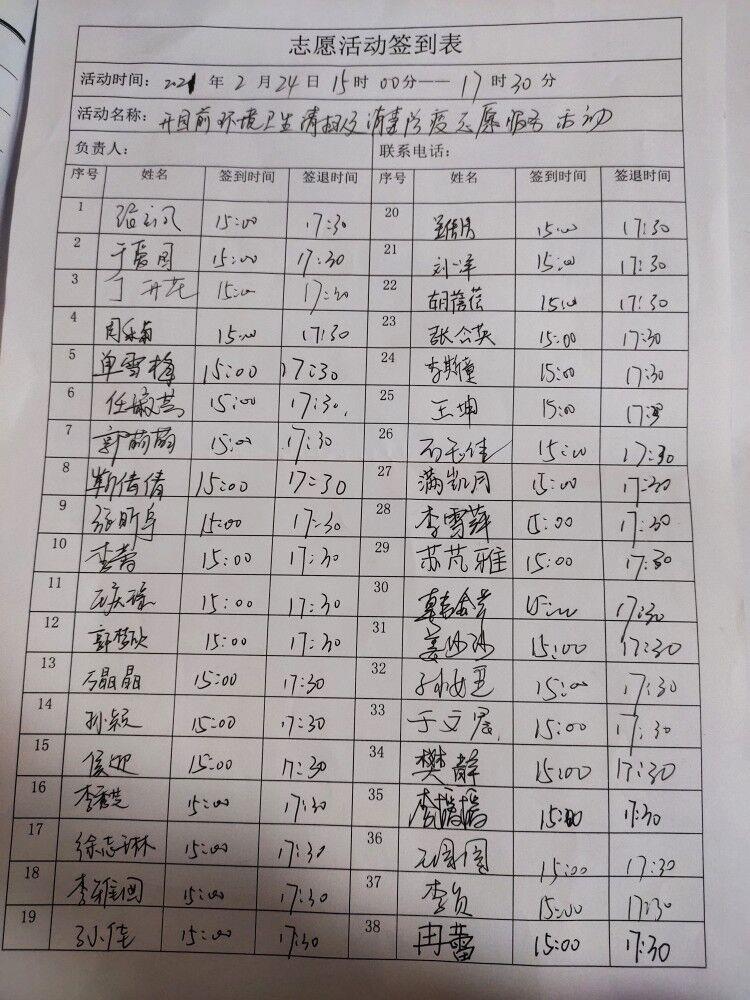 志愿活动签到表
活动时间: 2021 年 2 月 24 日 15 时 00 分 —— 17 时 30 分
活动名称: 开园前环境卫生清扫及消毒防疫志愿服务活动
负责人: 联系电话:
序号 姓名 签到时间 签退时间 序号 姓名 签到时间 签退时间
1 15:00 17:30 20 15:00 17:30
2 于爱园 15:00 17:30 21 刘洋 15:00 17:30
3 丁开花 15:00 17:30 22 胡蓓蓓 15:00 17:30
4 15:00 17:30 23 张合英 15:00 17:30
5 单雪梅 15:00 17:30 24 李斯童 15:00 17:30
6 任淑芸 15:00 17:30 25 王坤 15:00 17:30
7 郭萌萌 15:00 17:30 26 石子佳 15:00 17:30
8 靳倩倩 15:00 17:30 27 满凯月 15:00 17:30
9 15:00 17:30 28 李雪萍 15:00 17:30
10 李蕾 15:00 17:30 29 苏芃雅 15:00 17:30
11 15:00 17:30 30 15:00 17:30
12 郭梦欣 15:00 17:30 31 姜沙沙 15:00 17:30
13 晶晶 15:00 17:30 32 15:00 17:30
14 孙颖 15:00 17:30 33 于文展 15:00 17:30
15 侯迎 15:00 17:30 34 樊静 15:00 17:30
16 15:00 17:30 35 李瑶瑶 15:00 17:30
17 徐志琳 15:00 17:30 36 15:00 17:30
18 李雅 15:00 17:30 37 李贞 15:00 17:30
19 孙佳 15:00 17:30 38 冉蕾 15:00 17:30